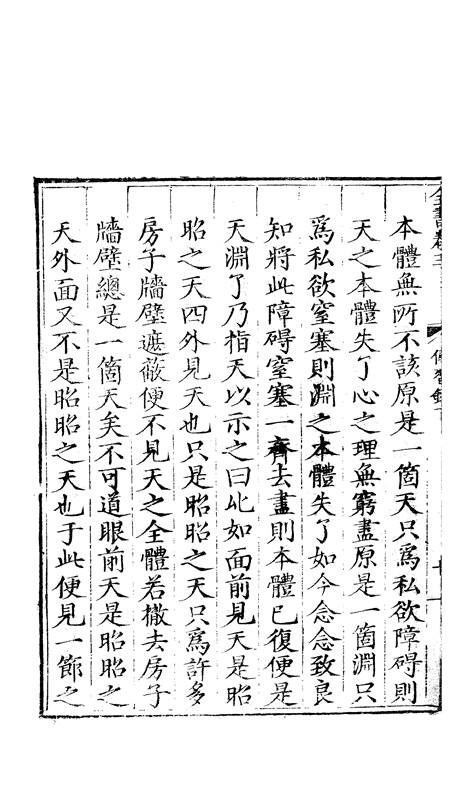 全書卷三
傳習錄下
本體無所不該原是一箇天只爲私欲障碍則
天之本體失了心之理無窮盡原是一箇淵只
爲私欲窒塞則淵之本體失了如今念念致良
知將此障碍窒塞一齊去盡則本體已復便是
天淵了乃指天以示之曰比如面前見天是昭
昭之天四外見天也只是昭昭之天只爲許多
房子牆壁遮蔽便不見天之全體若撤去房子
牆壁總是一箇天矣不可道眼前天是昭昭之
天外面又不是昭昭之天也于此便見一節之